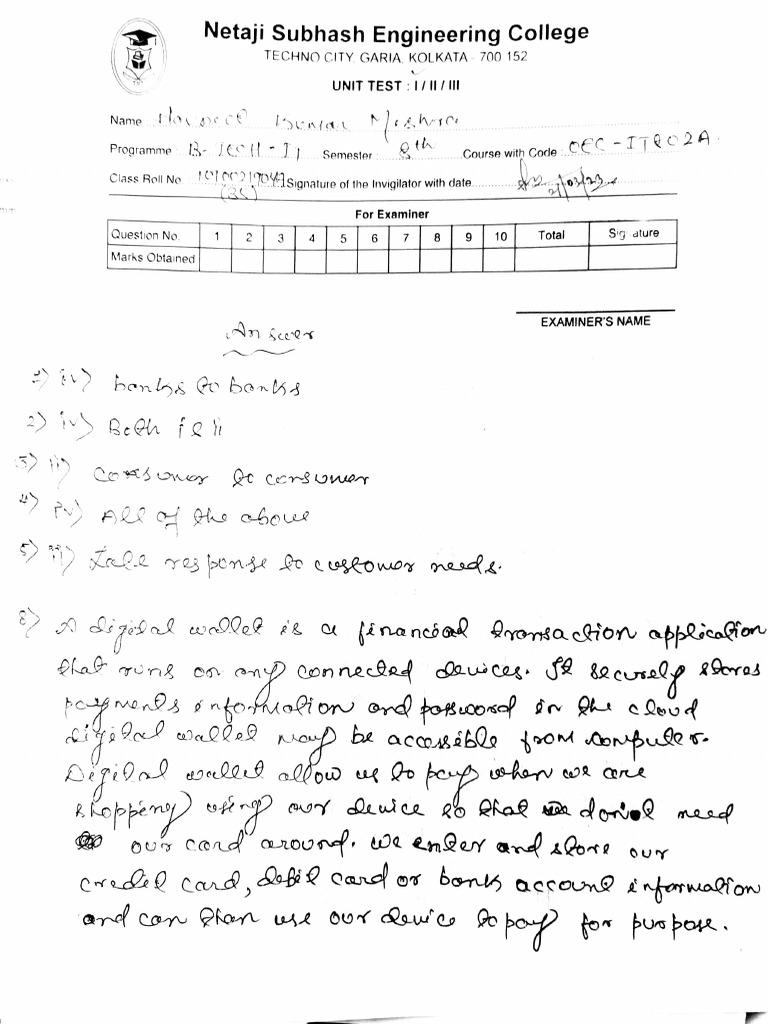 Netaji Subhash Engineering College
TECHNO CITY, GARIA, KOLKATA - 700 152
UNIT TEST : I / II / III
Name Kumar Mishra
Programme B-TECH-IT Semester 8th Course with Code OEC-IT802A
Class Roll No. Signature of the Invigilator with date
For Examiner
Question No. 1 2 3 4 5 6 7 8 9 10 Total Signature
Marks Obtained
EXAMINER'S NAME
Answer
1) iv) banks to banks
2) iv) Both i & ii
3) ii) consumer to consumer
4) iv) All of the above
5) response to customer needs.
8) A digital wallet is a financial transaction application
that runs on any connected devices. It securely stores
payments information and password in the cloud
digital wallet may be accessible from computer.
Digital wallet allow us to pay when we are
shopping using our device so that we donot need
our card around. we enter and store our
credit card, debit card or bank account information
and can than use our device to pay for purpose.